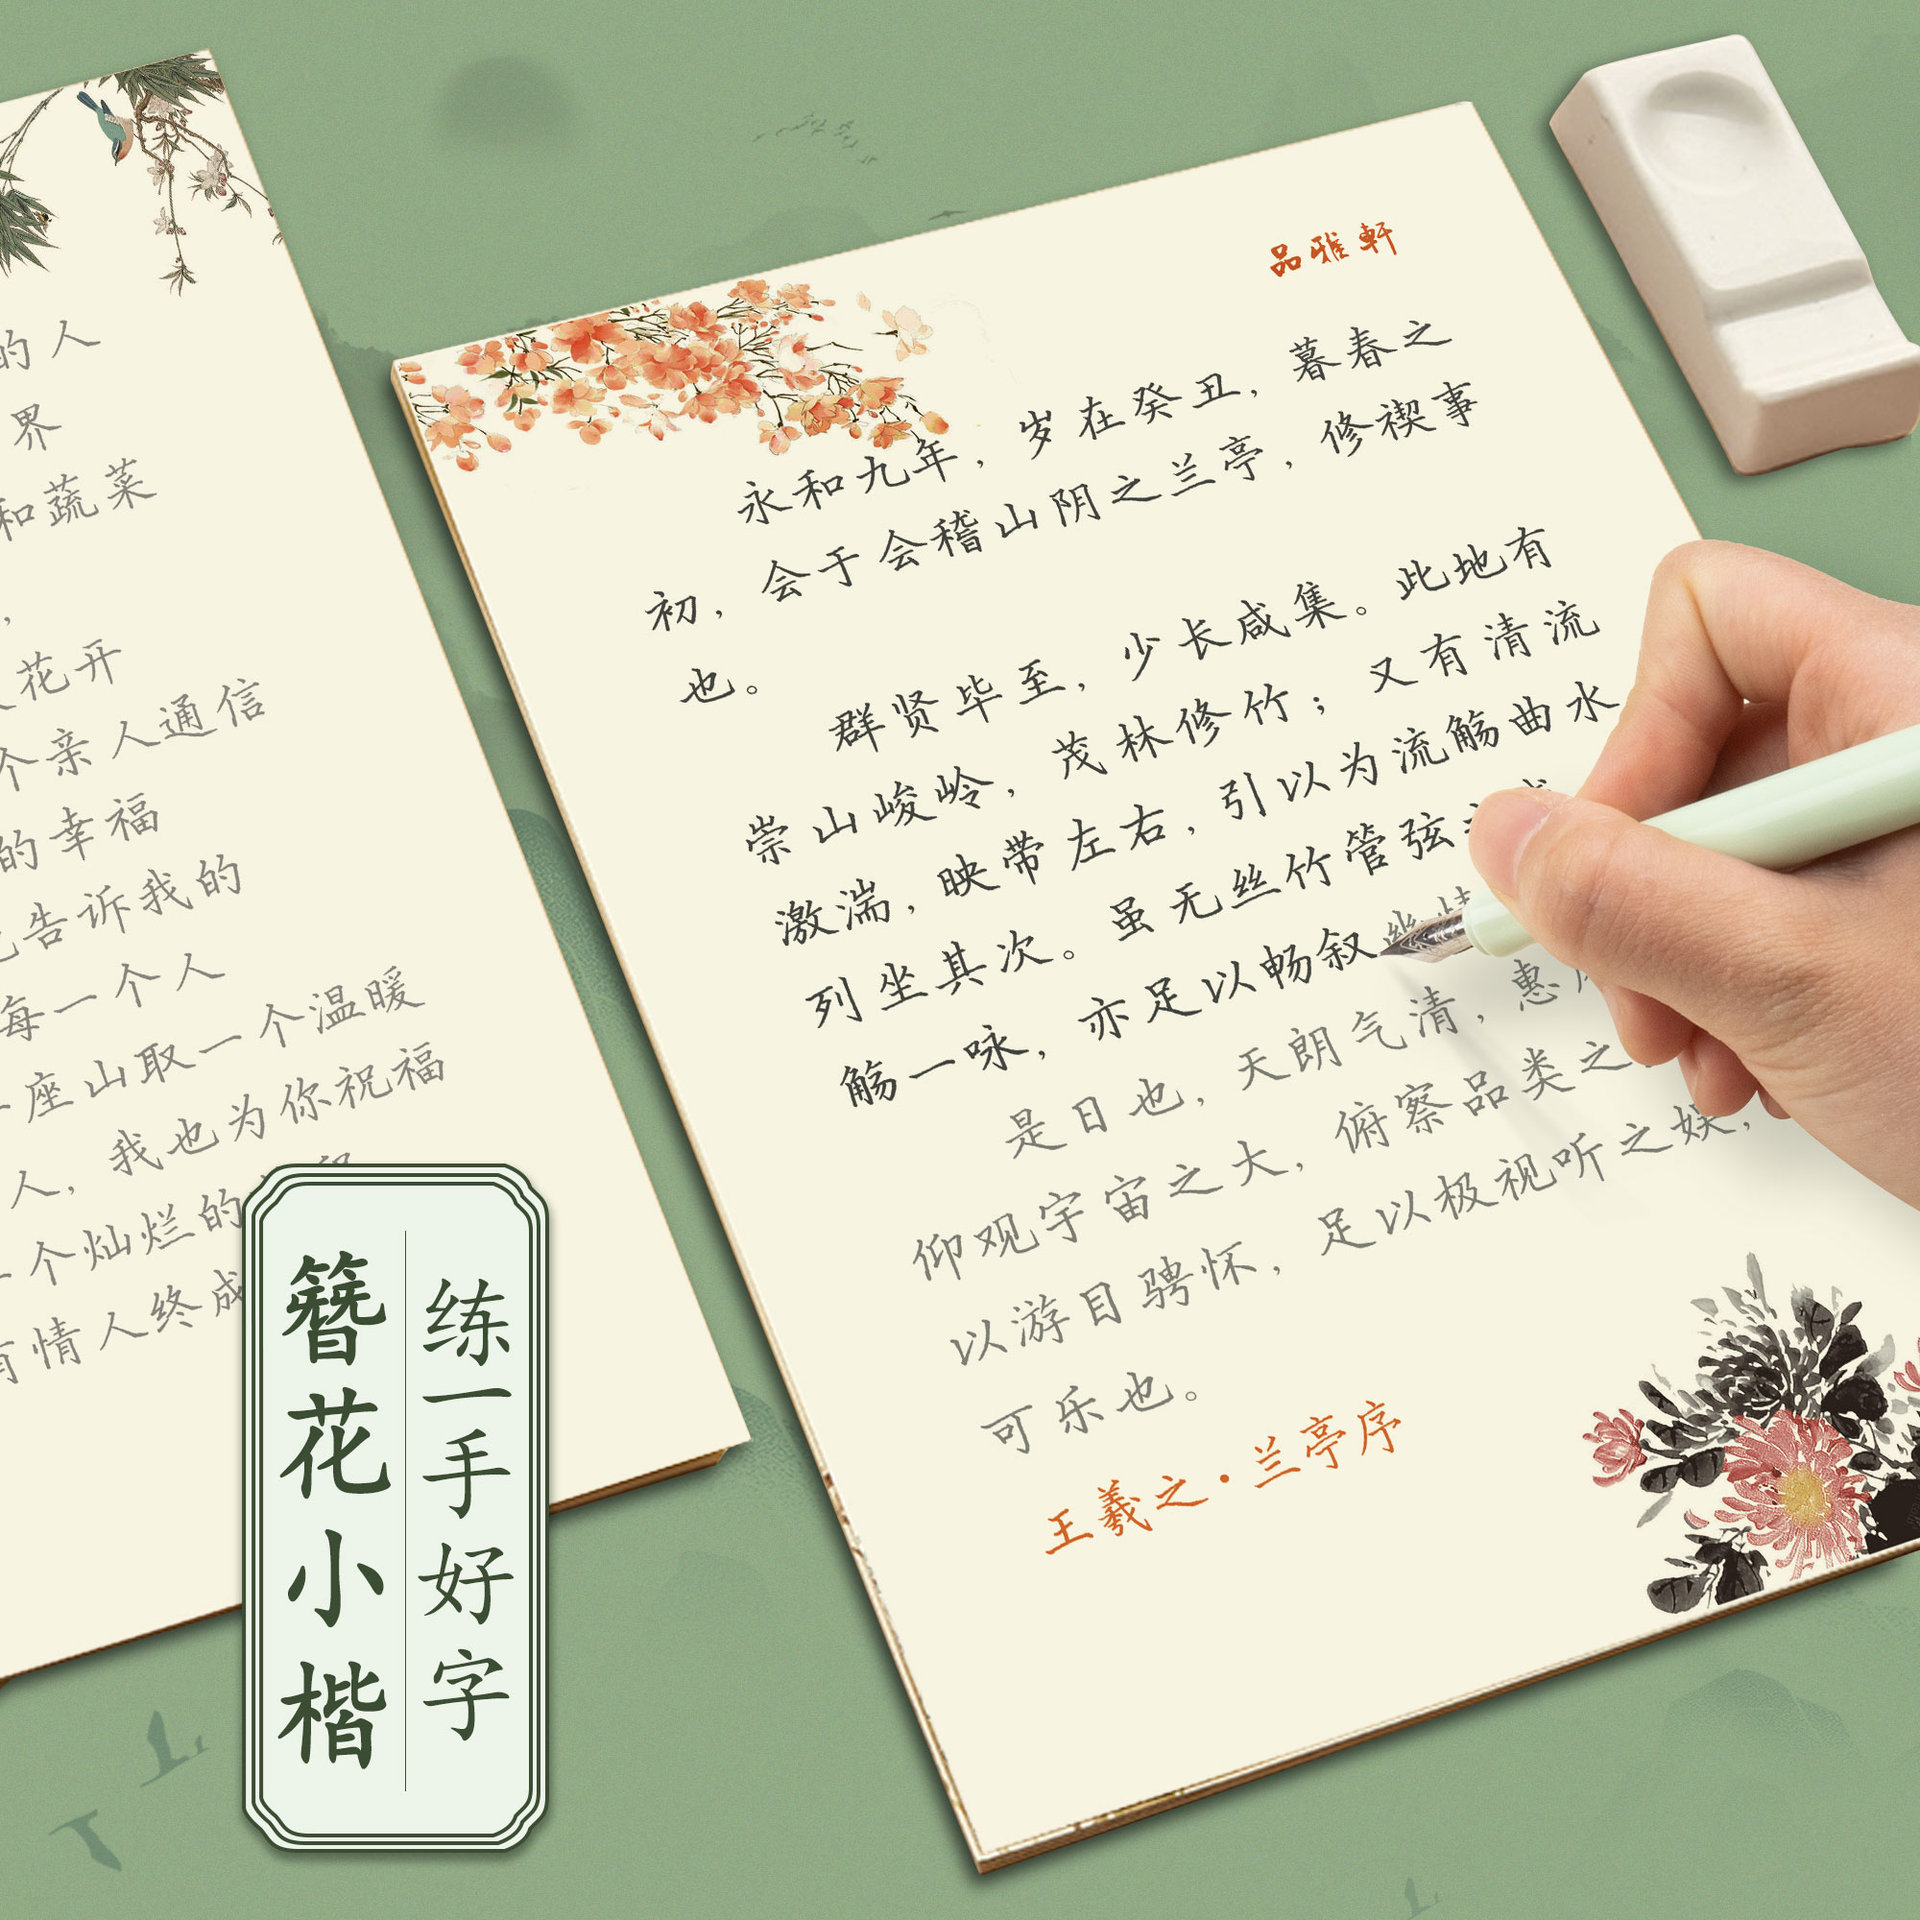 的人
界
和蔬菜
花开
个亲人通信
的幸福
告诉我的
每一个人
座山取一个温暖
人，我也为你祝福
一个灿烂的
有情人终成
品雅軒
永和九年，岁在癸丑，暮春之
初，会于会稽山阴之兰亭，修禊事
也。
群贤毕至，少长咸集。此地有
崇山峻岭，茂林修竹；又有清流
激湍，映带左右，引以为流觞曲水
列坐其次。虽无丝竹管弦
觞一咏，亦足以畅叙幽情
是日也，天朗气清，惠
仰观宇宙之大，俯察品类之
以游目骋怀，足以极视听之娱，
可乐也。
王羲之·兰亭序
练一手好字
簪花小楷